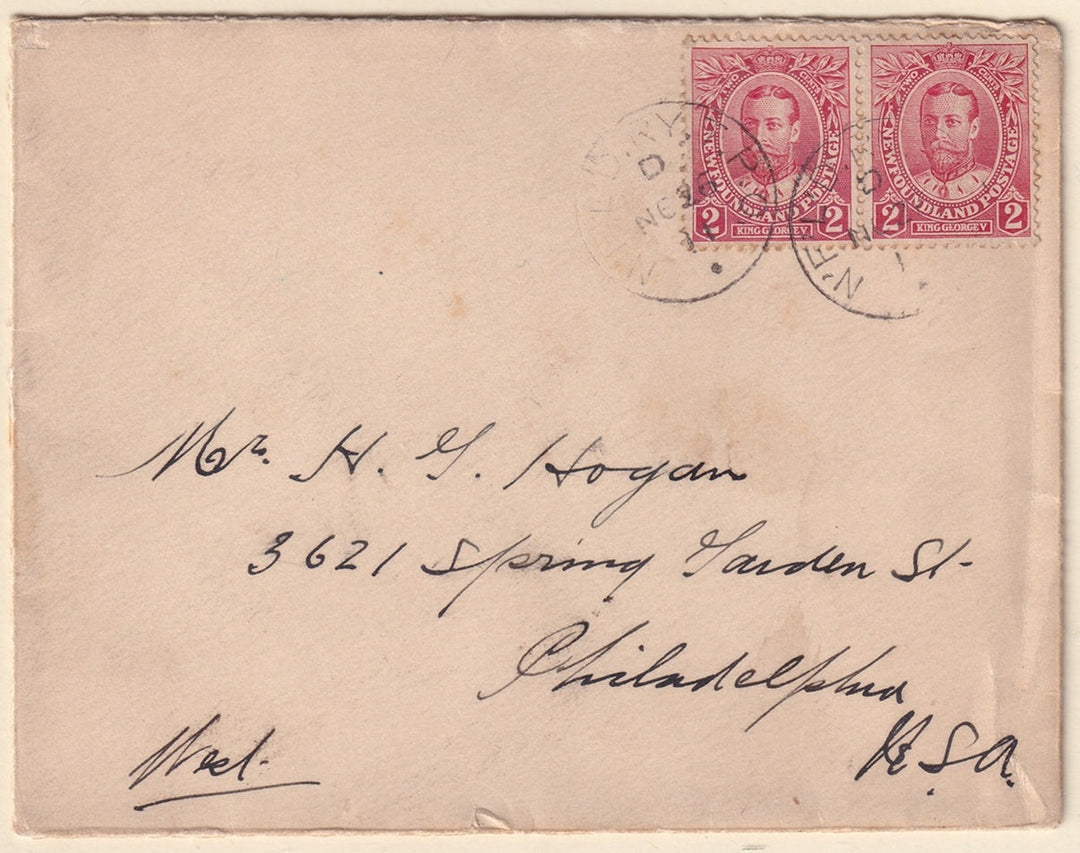 TWO CENTS
NEWFOUNDLAND POSTAGE
2 KING GEORGE V 2
NEWFOUNDLAND POSTAGE
2 KING GEORGE V 2
D
NO 26
N'F'L'D
Mr. H. G. Hogan
3621 Spring Garden St-
Philadelphia
U.S.A.
West.